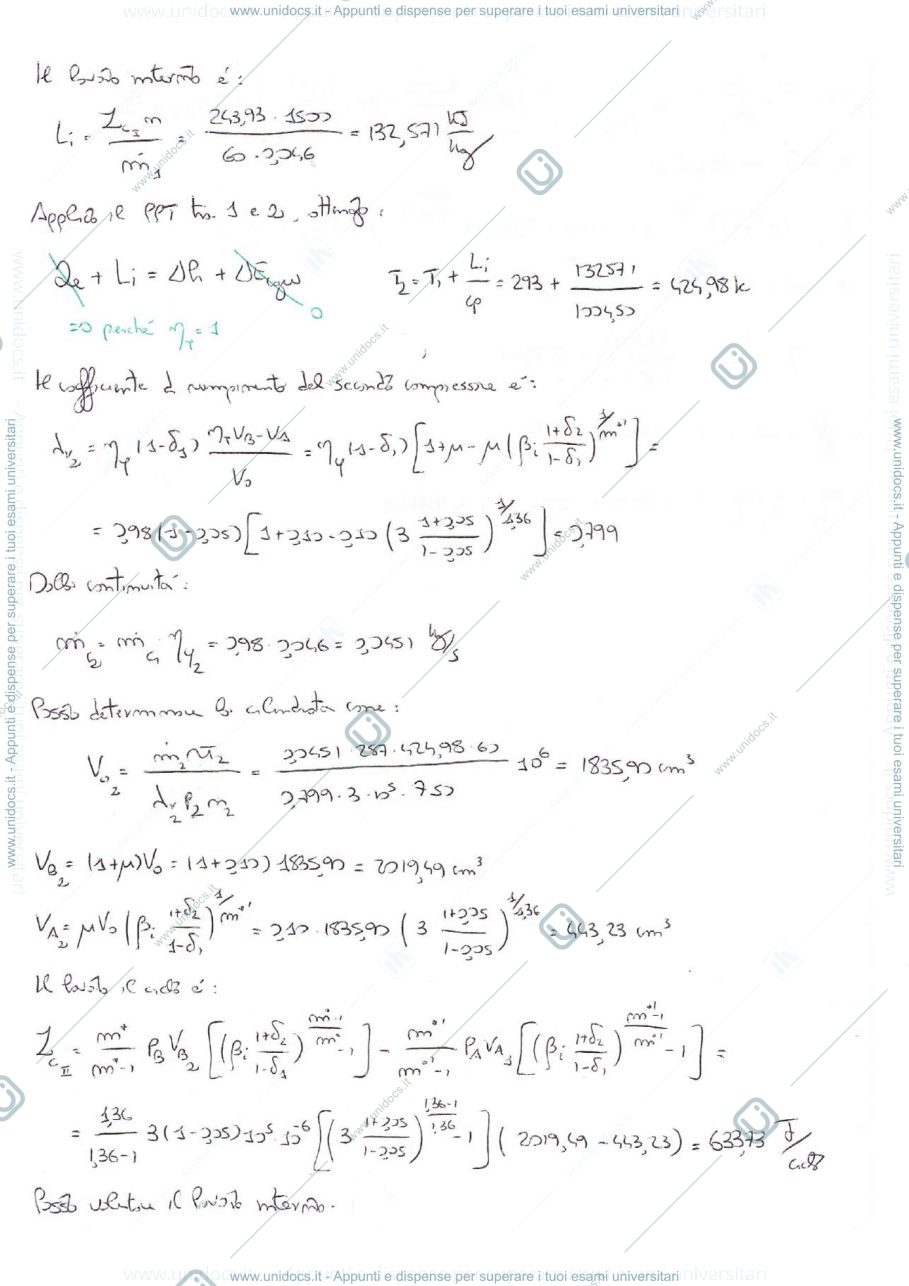 www.unidocs.it - Appunti e dispense per superare i tuoi esami universitari
Il lavoro interno è:
Li = L_cI n / ṁ1 = 243,93 · 1500 / 60 · 0,046 = 132,571 kJ/kg
Applico il PPT tra 1 e 2, ottengo:
Qe + Li = Δh + ΔE_gw
T2 = T1 + Li / cp = 293 + 132571 / 1004,50 = 424,98 K
=0 perché η_y = 1
0
Il coefficiente di riempimento del secondo compressore è:
λv2 = η_y (1-δ1) (η_r V_B - V_A) / V0 = η_y (1-δ1) [1+μ - μ (βi (1+δ2)/(1-δ1))^(1/m*')] =
= 0,98 (1-0,05) [1+0,10 - 0,10 (3 (1+0,05)/(1-0,05))^(1/1,36)] = 0,799
Dalla continuità:
ṁ2 = ṁ1 η_y2 = 0,98 · 0,046 = 0,0451 kg/s
Posso determinare la cilindrata come:
V02 = ṁ2 R T2 / λv2 P2 n2 = 0,0451 · 287 · 424,98 · 60 / 0,799 · 3 · 10^5 · 750 10^6 = 1835,90 cm³
V_B2 = (1+μ)V0 = (1+0,10) 1835,90 = 2019,49 cm³
V_A2 = μV0 (βi (1+δ2)/(1-δ1))^(1/m*') = 0,10 · 1835,90 (3 (1+0,05)/(1-0,05))^(1/1,36) = 443,23 cm³
Il lavoro il ciclo è:
L_cII = m*/(m*-1) P_B V_B2 [(βi (1+δ2)/(1-δ1))^((m*-1)/m*) - 1] - m*'/(m*'-1) P_A V_A2 [(βi (1+δ2)/(1-δ1))^((m*'-1)/m*') - 1] =
= 1,36/(1,36-1) 3(1-0,05)10^5 · 10^-6 [(3 (1+0,05)/(1-0,05))^((1,36-1)/1,36) - 1] (2019,49 - 443,23) = 633,73 J/ciclo
Posso valutare il lavoro interno.
www.unidocs.it - Appunti e dispense per superare i tuoi esami universitari